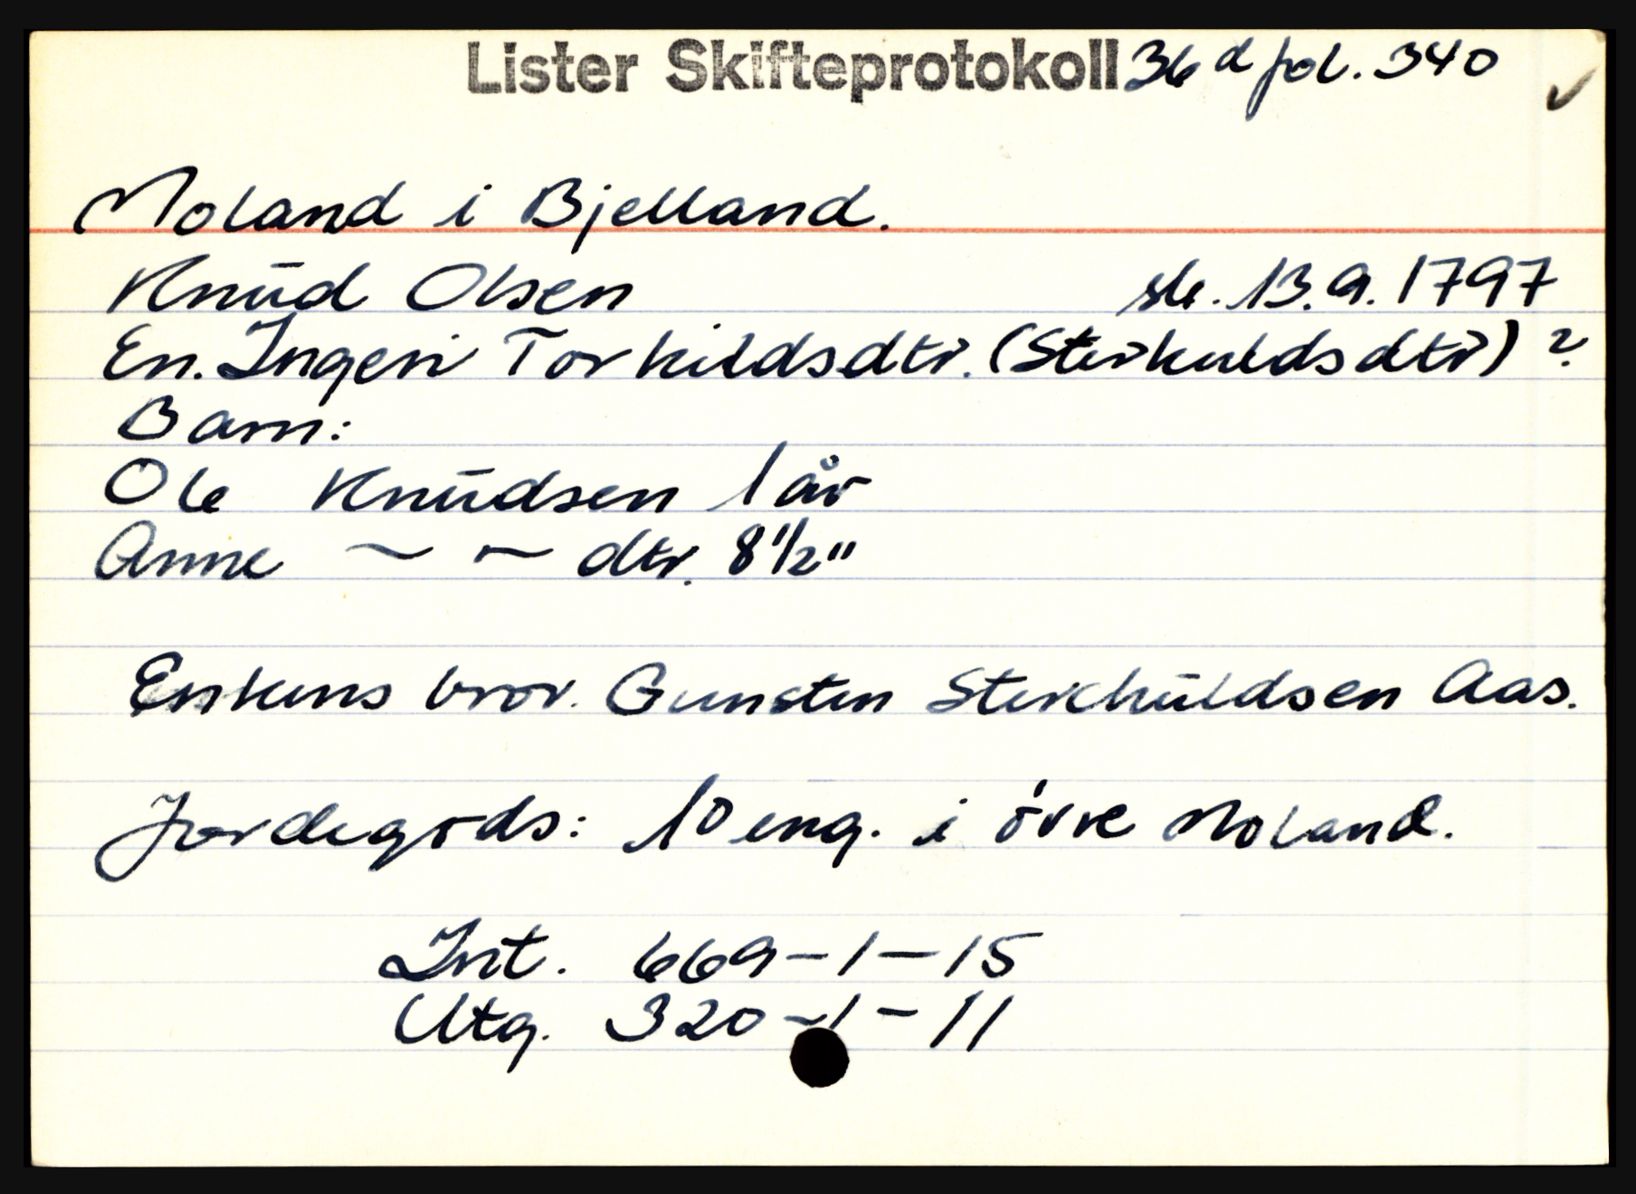 Lister Skifteprotokoll 36 d fol. 340 ✓
Moland i Bjelland.
Knud Olsen sk. 13.9.1797
En. Ingeri Torkildsdtr. (Sterkuldsdtr) ?
Barn:
Ole Knudsen 1 år
Anne ~ ~ dtr. 8 1/2 "
Enkens bror. Gunsten Sterchuldsen Aas.
Jordegods: 10 eng. i övre Moland.
Int. 669 - 1 - 15
Utg. 320 - 1 - 11